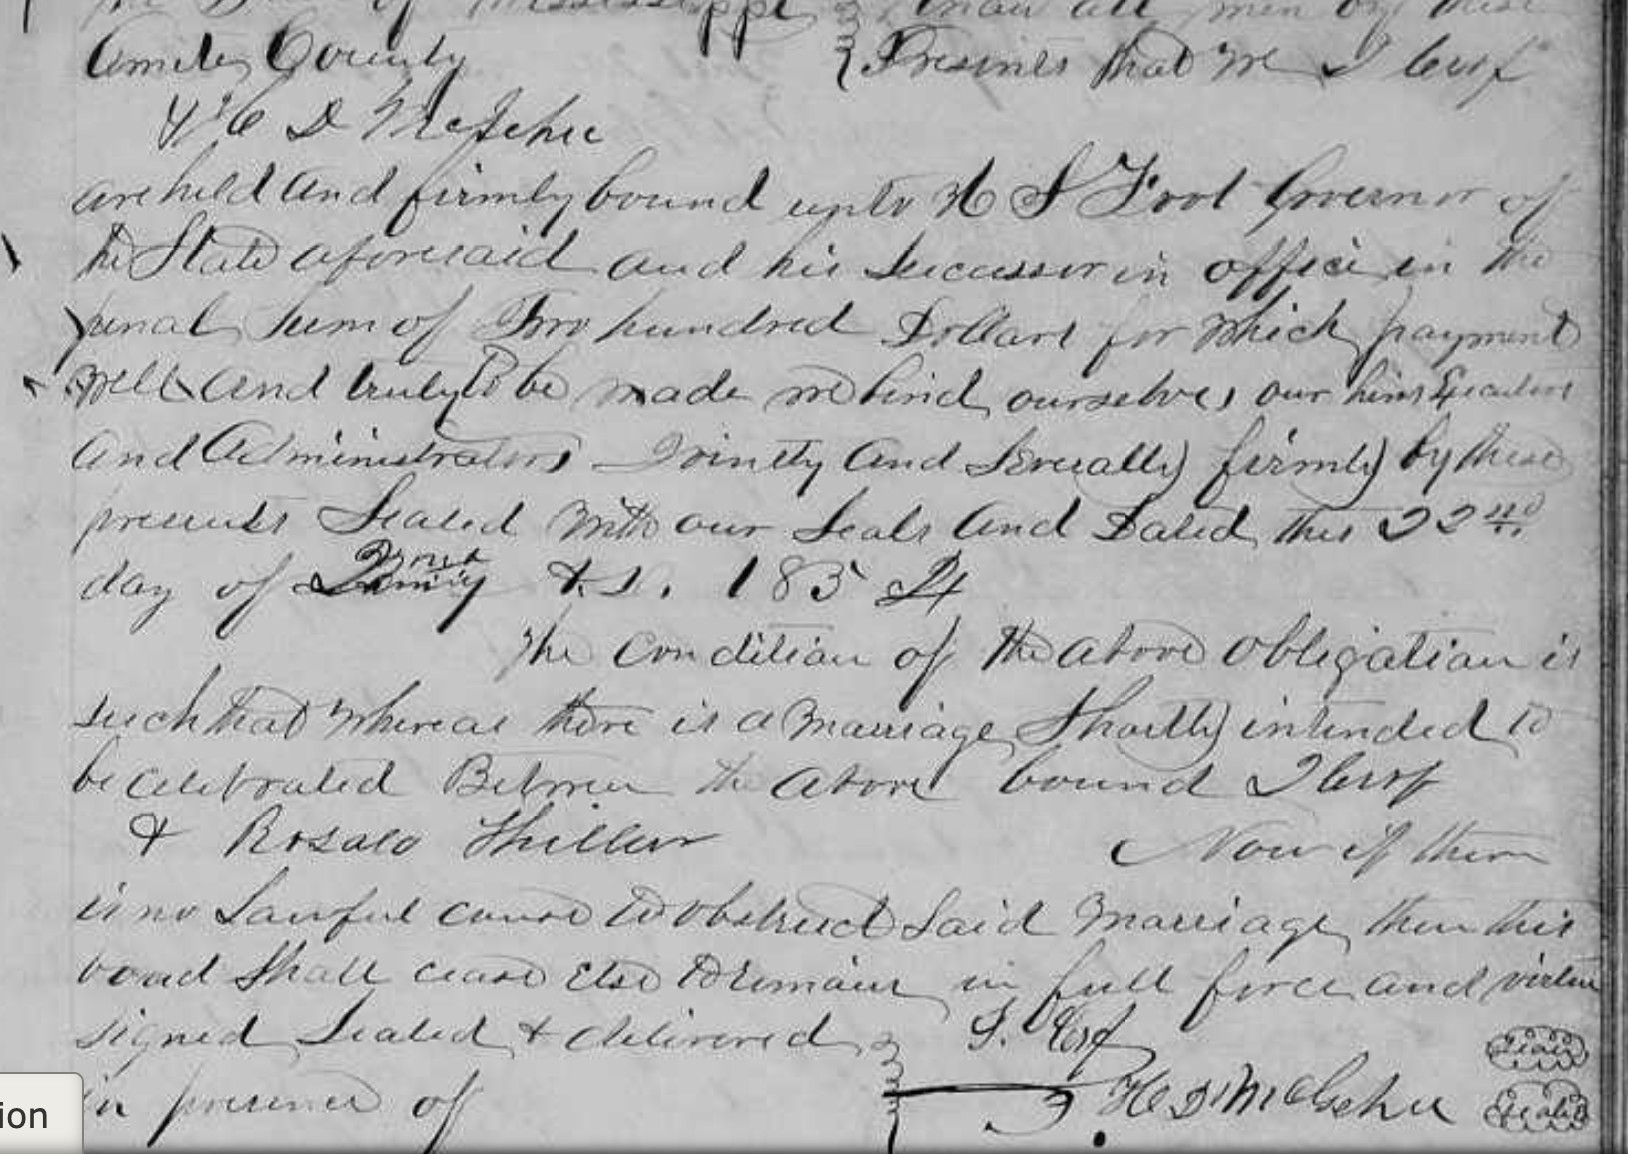 The State of Mississippi } Know all men by these
Amite County } Presents that we I Cerf
& C D McGehee
are held and firmly bound unto H S Foot Governor of
the State aforesaid and his Successor in office in the
penal Sum of Two hundred Dollars for which payment
well and truly to be made we bind ourselves our heirs Executors
and Administrators Jointly and Severally firmly by these
presents Sealed with our Seals and Dated this 22nd
day of A.D. 185
The Condition of the above obligation is
such that whereas there is a Marriage Shortly intended to
be celebrated Between the above bound I Cerf
& Rosalo Shiller Now if there
is no Lawful cause to obstruct said Marriage then this
bond Shall cease Else to remain in full force and virtue
signed Sealed & delivered } I. Cerf Seal
in presence of } McGehee Seal
ion